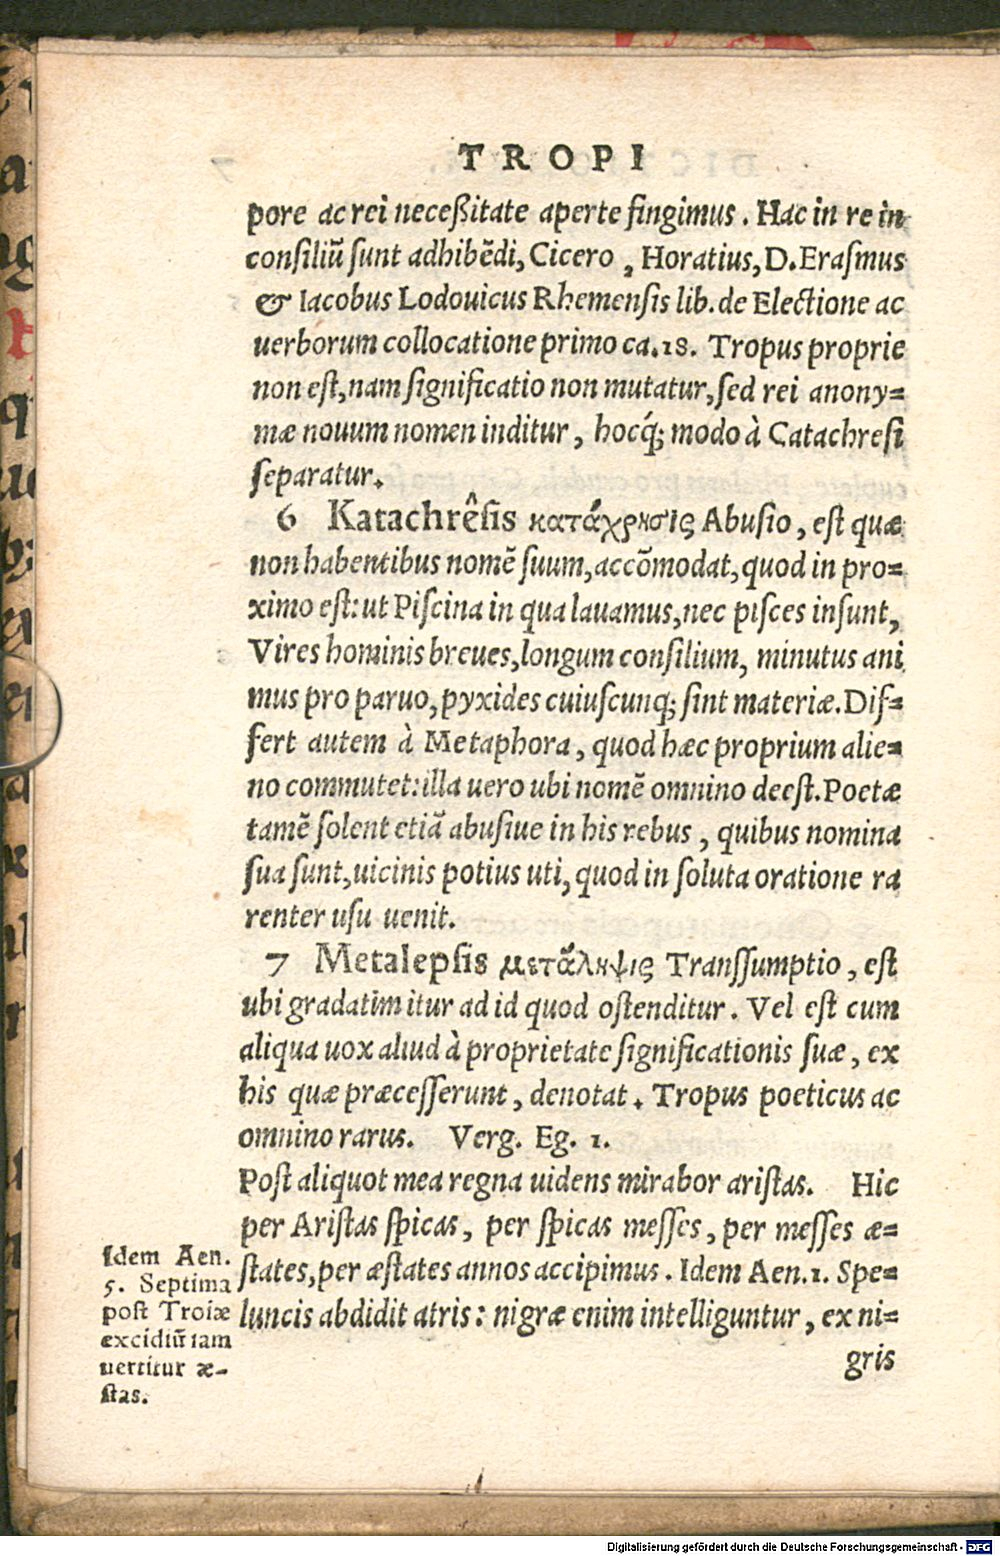 TROPI
pore ac rei neceßitate aperte fingimus. Hac in re in
consiliũ sunt adhibẽdi, Cicero, Horatius, D. Erasmus
& Iacobus Lodouicus Rhemensis lib. de Electione ac
uerborum collocatione primo ca. 18. Tropus proprie
non est, nam significatio non mutatur, sed rei anony=
mæ nouum nomen inditur, hocq́; modo à Catachresi
separatur.
6 Katachrêsis κατάχρησις Abusio, est quæ
non habentibus nomẽ suum, accõmodat, quod in pro=
ximo est: ut Piscina in qua lauamus, nec pisces insunt,
Vires hominis breues, longum consilium, minutus ani
mus pro paruo, pyxides cuiuscunq; sint materiæ. Dif=
fert autem à Metaphora, quod hæc proprium alie=
no commutet: illa uero ubi nomẽ omnino deest. Poetæ
tamẽ solent etiã abusiue in his rebus, quibus nomina
sua sunt, uicinis potius uti, quod in soluta oratione ra
renter usu uenit.
7 Metalepsis μετάληψις Transsumptio, est
ubi gradatim itur ad id quod ostenditur. Vel est cum
aliqua uox aliud à proprietate significationis suæ, ex
his quæ præcesserunt, denotat. Tropus poeticus ac
omnino rarus. Verg. Eg. 1.
Post aliquot mea regna uidens mirabor aristas. Hic
per Aristas spicas, per spicas messes, per messes æ=
states, per æstates annos accipimus. Idem Aen. 1. Spe=
luncis abdidit atris: nigræ enim intelliguntur, ex ni=
gris
Idem Aen.
5. Septima
post Troiæ
excidiũ iam
uertitur æ-
stas.
Digitalisierung gefördert durch die Deutsche Forschungsgemeinschaft - DFG